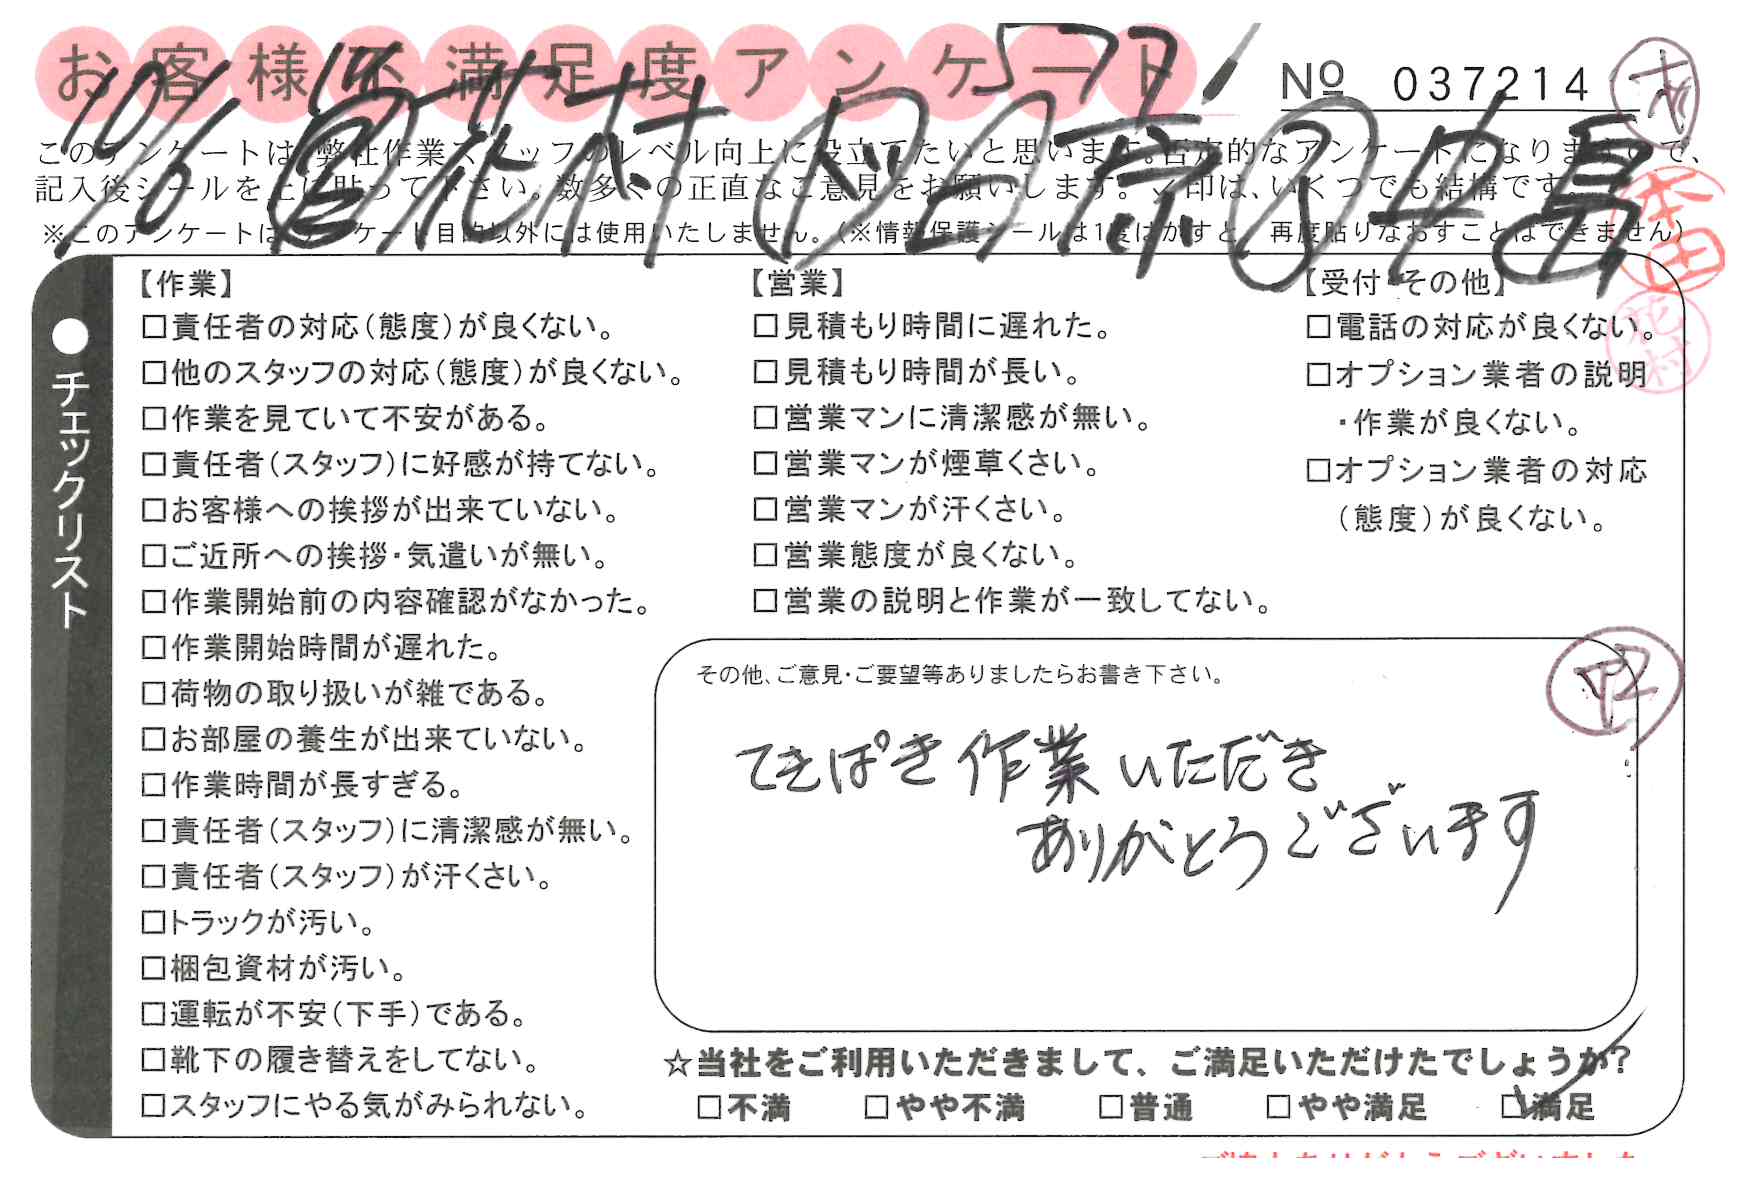 お客様不満足度アンケート
№ 037214
10/6
このアンケートは、弊社作業スタッフのレベル向上に役立てたいと思います。否定的なアンケートになりますので、
記入後シールを上に貼って下さい。数多くの正直なご意見をお願いします。✓印は、いくつでも結構です。
※このアンケートは、アンケート目的以外には使用いたしません。(※情報保護シールは1度はがすと、再度貼りなおすことはできません)
本田
花村
●チェックリスト
【作業】
□責任者の対応(態度)が良くない。
□他のスタッフの対応(態度)が良くない。
□作業を見ていて不安がある。
□責任者(スタッフ)に好感が持てない。
□お客様への挨拶が出来ていない。
□ご近所への挨拶・気遣いが無い。
□作業開始前の内容確認がなかった。
□作業開始時間が遅れた。
□荷物の取り扱いが雑である。
□お部屋の養生が出来ていない。
□作業時間が長すぎる。
□責任者(スタッフ)に清潔感が無い。
□責任者(スタッフ)が汗くさい。
□トラックが汚い。
□梱包資材が汚い。
□運転が不安(下手)である。
□靴下の履き替えをしてない。
□スタッフにやる気がみられない。
【営業】
□見積もり時間に遅れた。
□見積もり時間が長い。
□営業マンに清潔感が無い。
□営業マンが煙草くさい。
□営業マンが汗くさい。
□営業態度が良くない。
□営業の説明と作業が一致してない。
【受付・その他】
□電話の対応が良くない。
□オプション業者の説明
・作業が良くない。
□オプション業者の対応
(態度)が良くない。
その他、ご意見・ご要望等ありましたらお書き下さい。
てきぱき作業いただき
ありがとうございます
☆当社をご利用いただきまして、ご満足いただけたでしょうか?
□不満 □やや不満 □普通 □やや満足 ☑満足